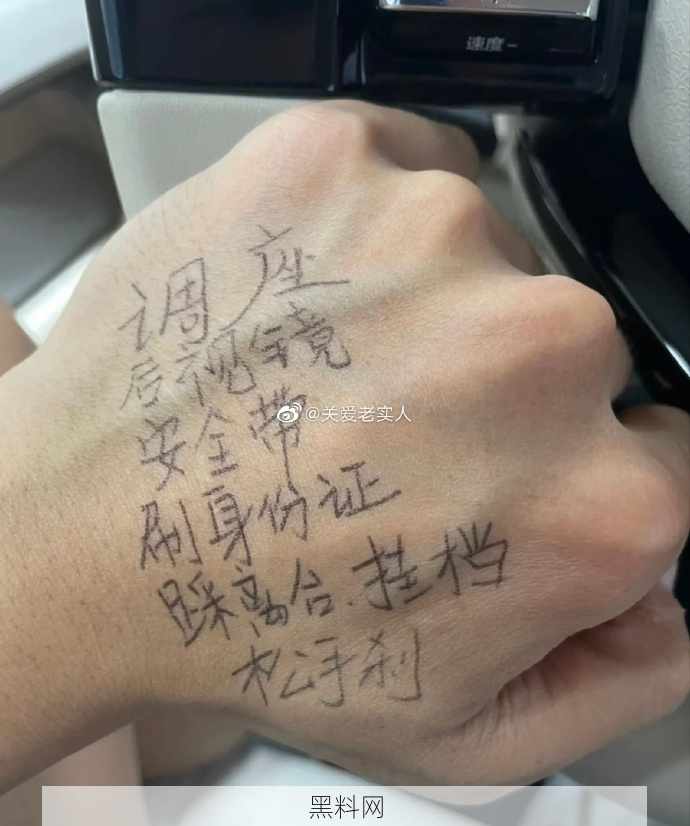 速度-
调座
后视镜
安全带
@关爱老实人
刷身份证
踩离合.挂档
松手刹
黑料网